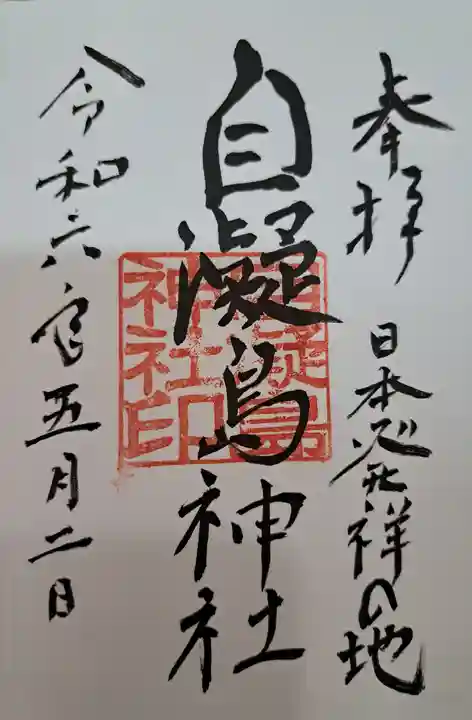 奉拝 日本発祥の地
自凝島神社
自凝島
神社印
令和六年五月二日